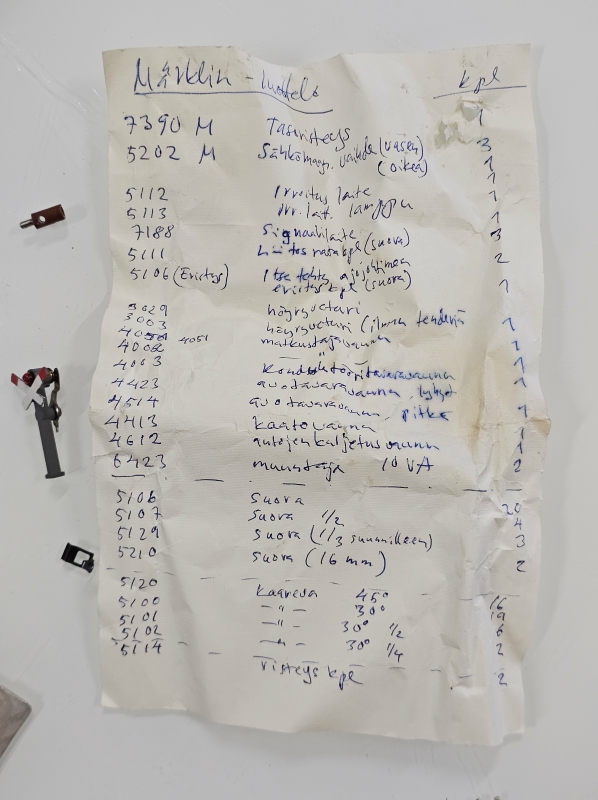 Märklin - luettelo kpl
7390 M Tasoristeys 1
5202 M Sähkömagn. vaihde (vasen) 3
(oikea) 1
5112 Irroitus laite 1
5113 irr. lait. lamppu 1
7188 Signaalilaite 1
5111 Liitos rata kpl (suora) 3
5106 (Eristys) Itse tehty ajojohtimen 2
eristys kpl (suora)
3029 höyryveturi 1
3003 höyryveturi (ilman tenderiä 1
4051 matkustajavaunu
4002 — " —
4003 Konduktööritavaravaunu 1
4423 avotavaravaunu, lyhyt 1
4514 avotavaravaunu, pitkä
4413 kaatovaunu 1
4612 autojenkuljetusvaunu 1
6423 muuntaja 10 VA 2
5106 suora 20
5107 suora 1/2 4
5129 suora (1/3 suunnilleen) 3
5210 suora (16 mm) 2
5120 Kaareva 45° 16
5100 — " — 30° 19
5101 — " — 30° 1/2 6
5102 — " — 30° 1/4 2
5114 risteys kpl 2